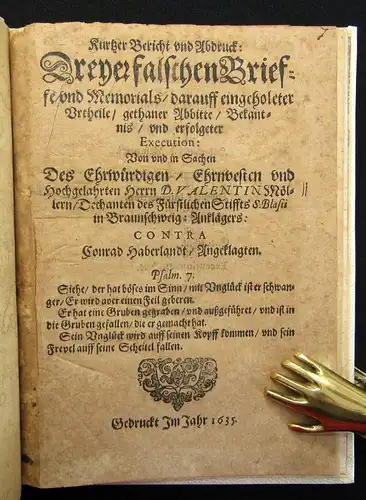 Kurtzer Bericht vnd Abdruck:
Dreyer falschen Brief-
fe/vnd Memorials/darauff eingeholeter
Vrtheile/gethaner Abbitte/Bekänt-
nis/vnd erfolgeter
Execution:
Von vnd in Sachen
Des Ehrwürdigen/Ehrnvesten vnd
Hochgelahrten Herrn D. VALENTIN Möl-
lern/Dechanten des Fürstlichen Stiffts S. Blasii
in Braunschweig: Anklägers:
CONTRA
Conrad Haberlandt/Angeklagten.
Psalm. 7.
Siehe/der hat böses im Sinn/mit Vnglück ist er schwan-
ger/Er wird aber einen Feil geberen.
Er hat eine Gruben gegraben/vnd außgeführet/vnd ist in
die Gruben gefallen/die er gemacht hat.
Sein Vnglück wird auff seinen Kopff kommen/vnd sein
Frevel auff seine Scheitel fallen.
Gedruckt Im Jahr 1635.